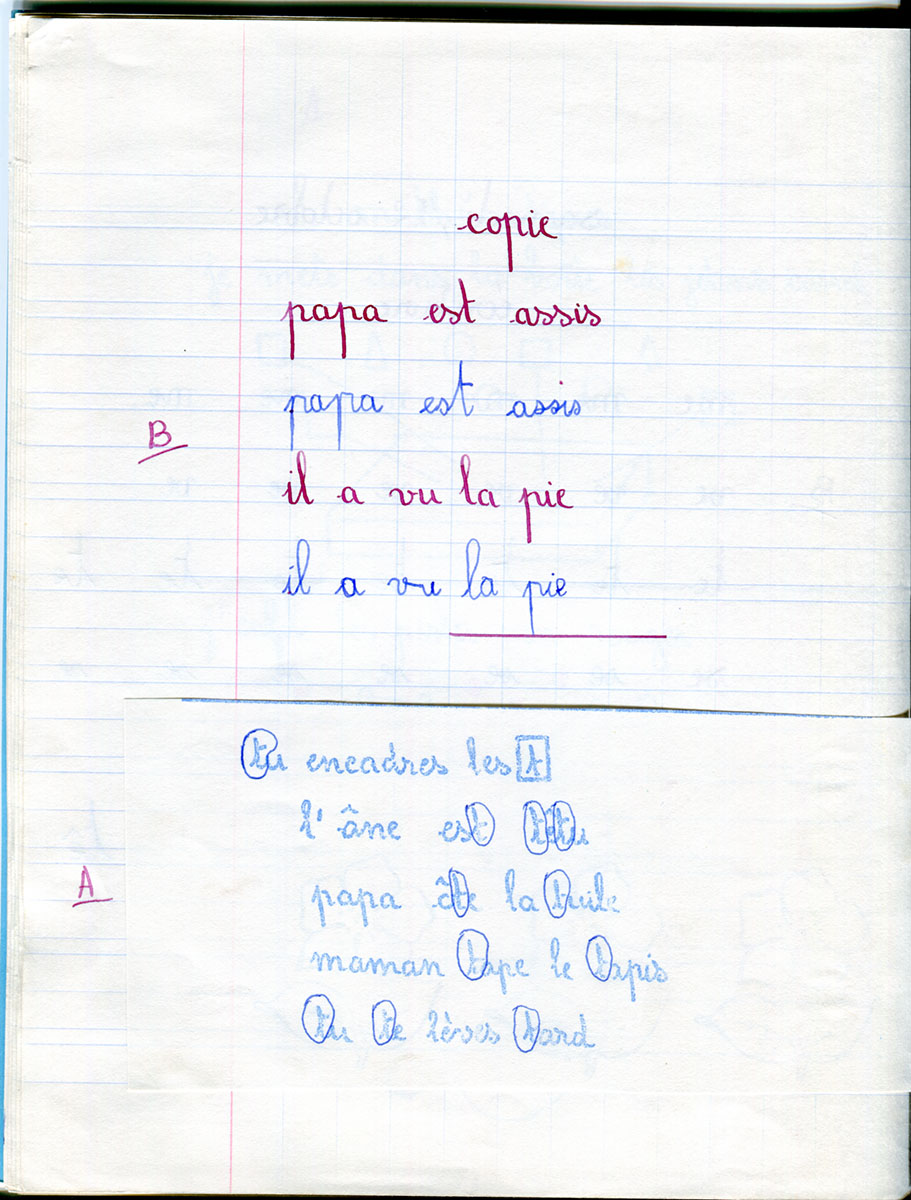 copie
papa est assis
papa est assis
B
il a vu la pie
il a vu la pie
tu encadres les t
l'âne est têtu
papa ôte la tuile
A
maman tape le tapis
tu te lèves tard